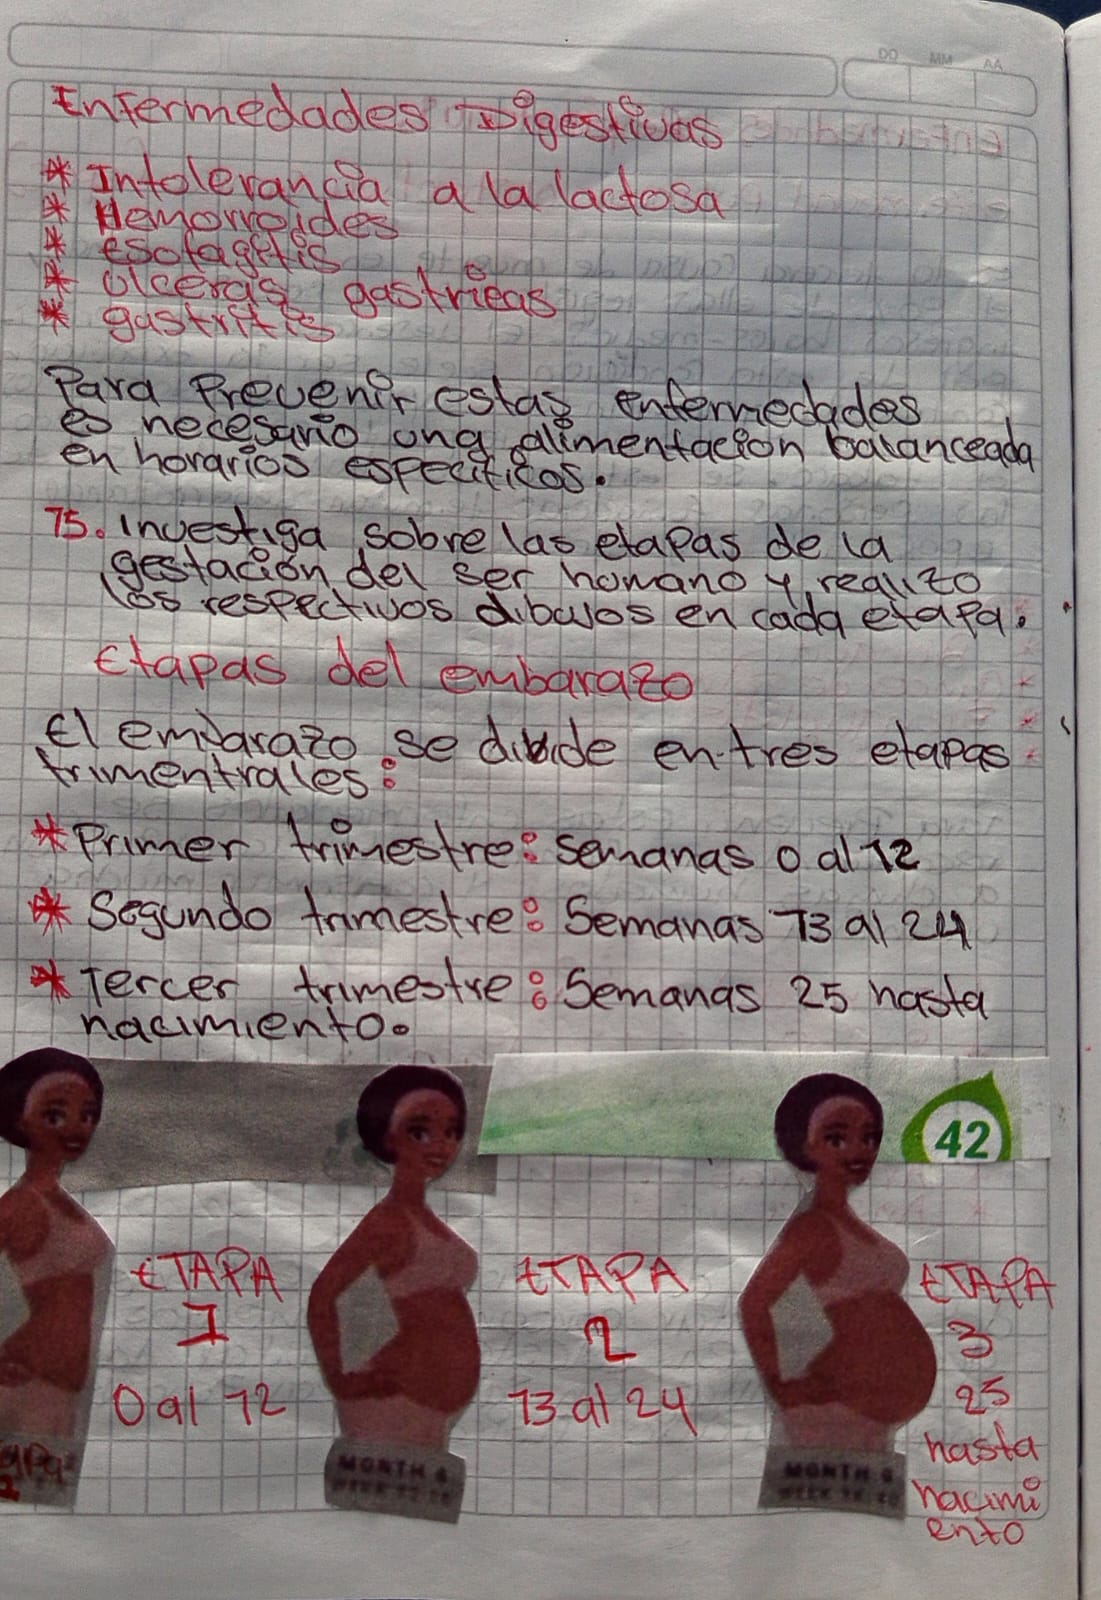 DD MM AA
Enfermedades Digestivas
* Intolerancia a la lactosa
* Hemorroides
* esofagitis
* Ulceras gastricas
* gastritis
Para Prevenir estas enfermedades
es necesario una alimentacion balanceada
en horarios especificos.
15. Investiga sobre las etapas de la
gestación del ser humano y realizo
los respectivos dibujos en cada etapa.
Etapas del embarazo
El embarazo se divide en tres etapas
trimentrales:
* Primer trimestre: Semanas 0 al 12
* Segundo trimestre: Semanas 13 al 24
* Tercer trimestre: Semanas 25 hasta
nacimiento.
42
ETAPA
1
0 al 12
ETAPA
2
13 al 24
ETAPA
3
25
hasta
nacimi
ento
MONTH
MONTH